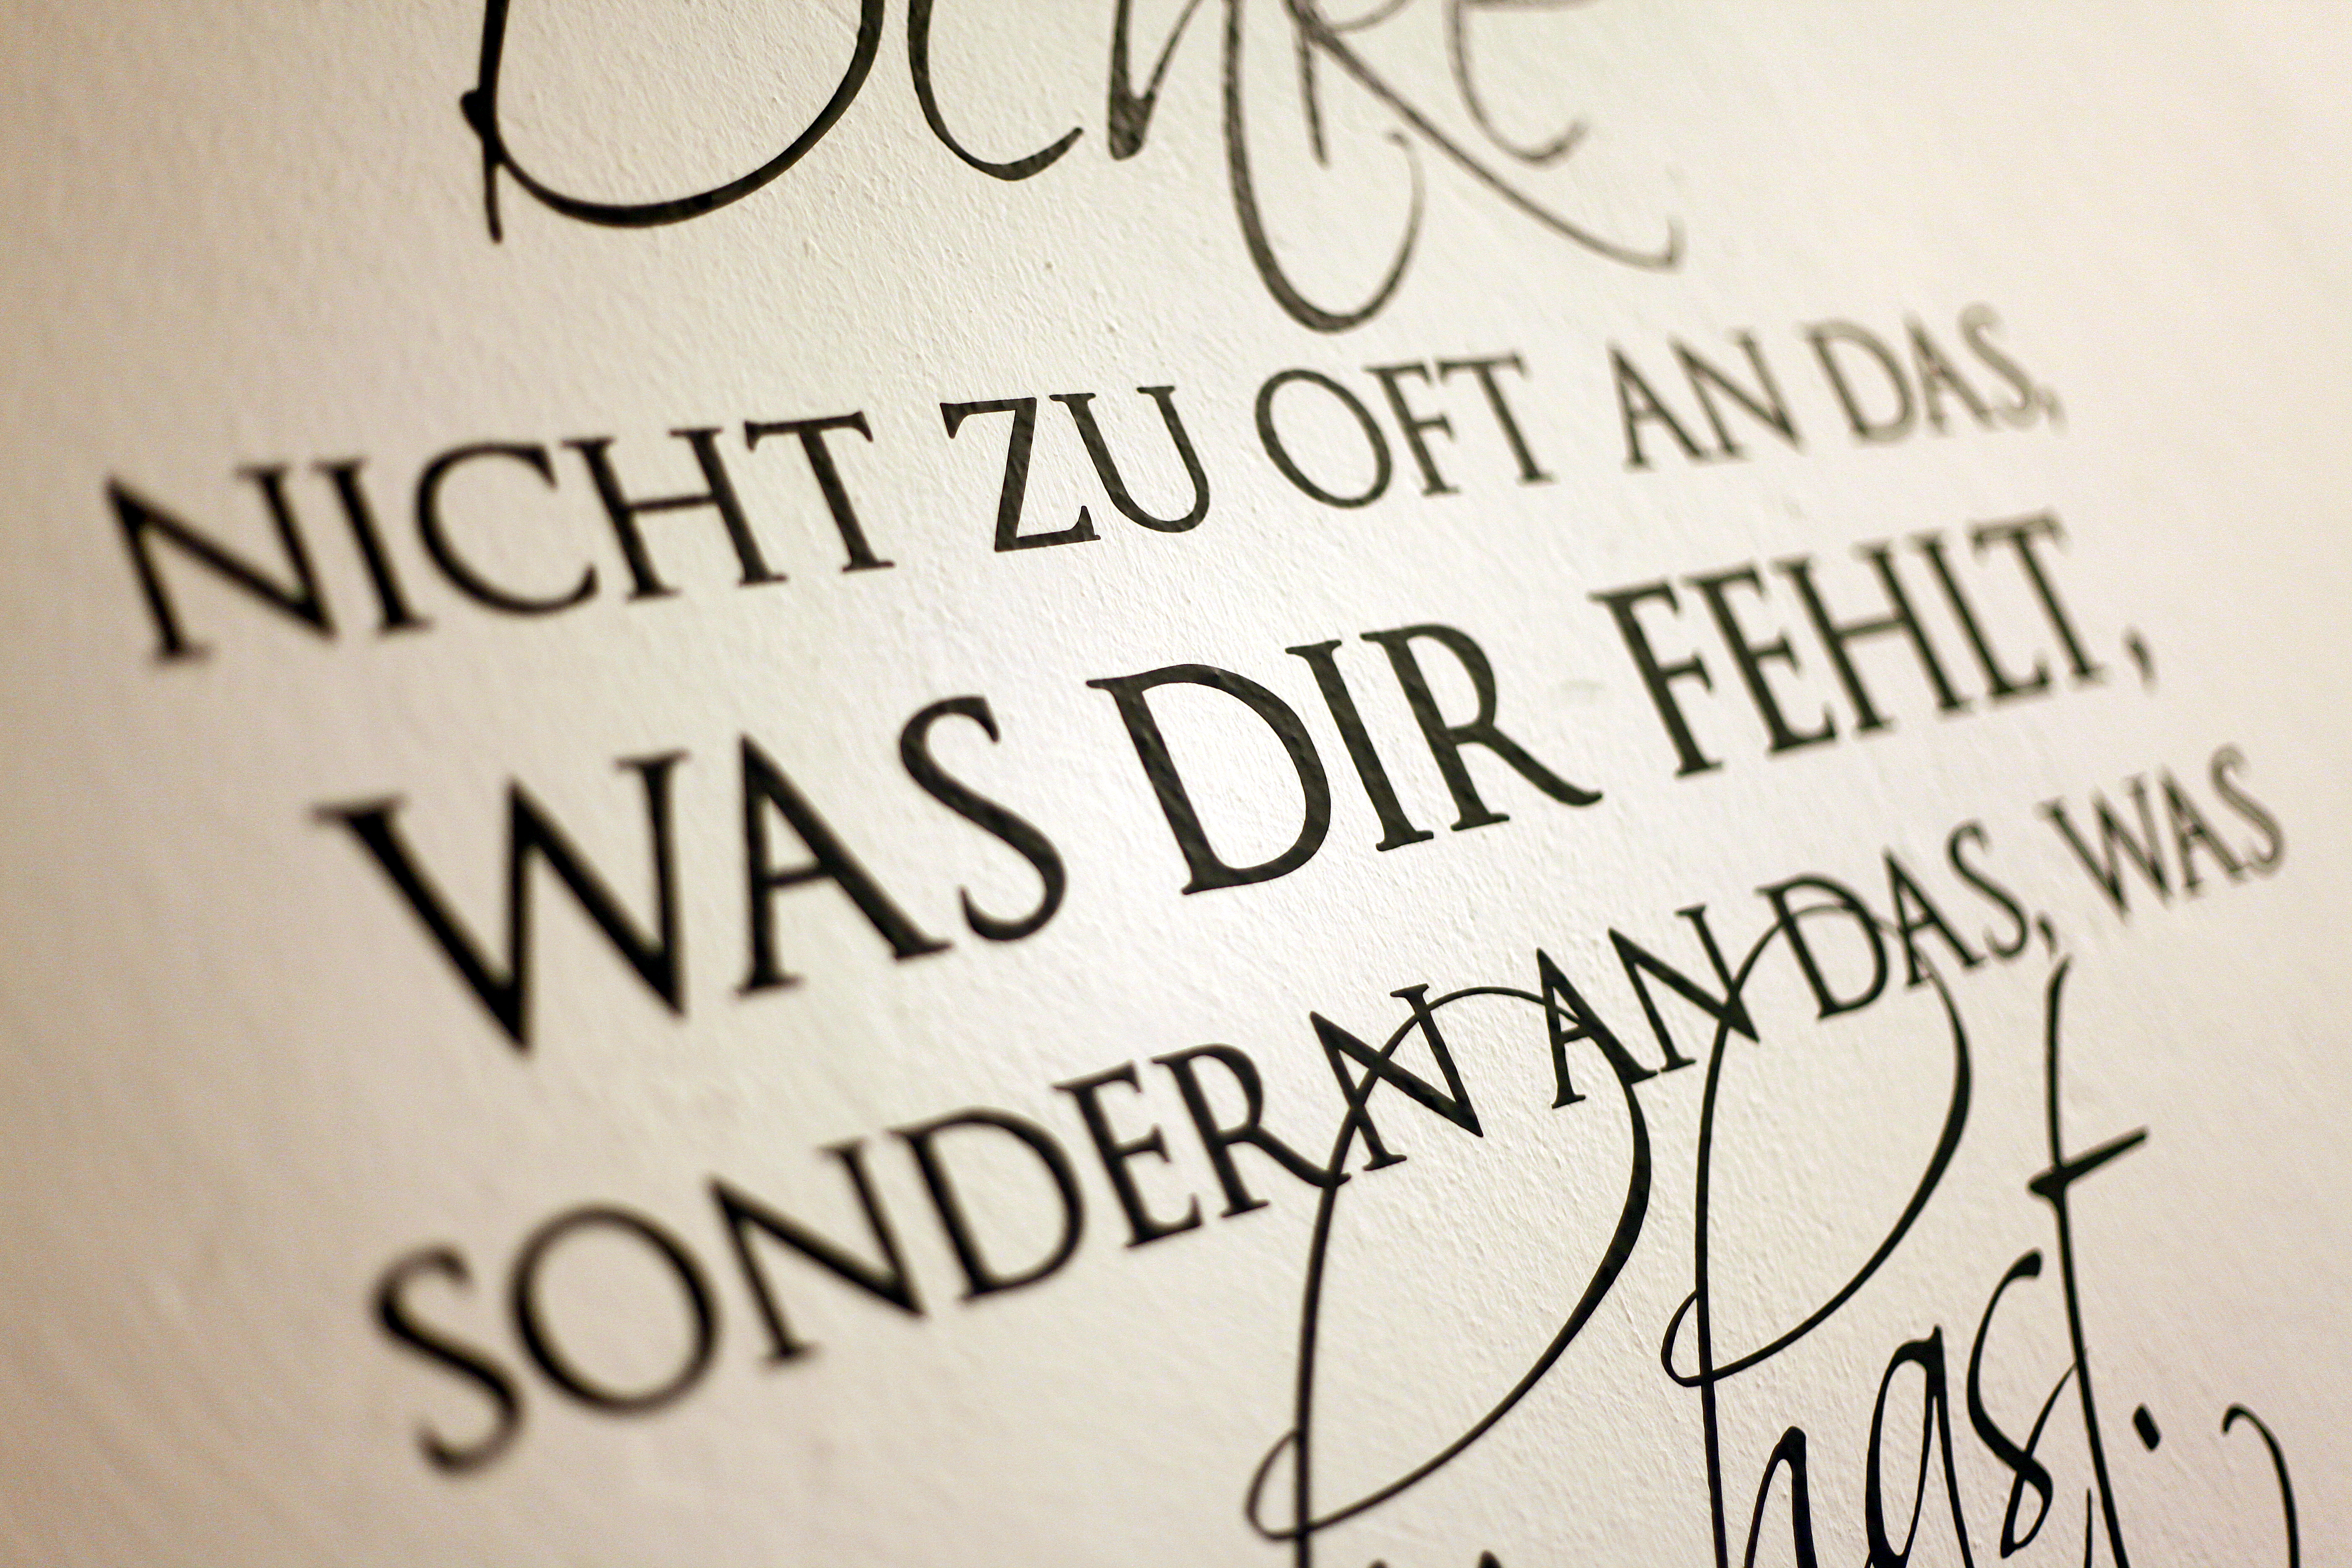 Denke
NICHT ZU OFT AN DAS,
WAS DIR FEHLT,
SONDERN AN DAS, WAS
hast.